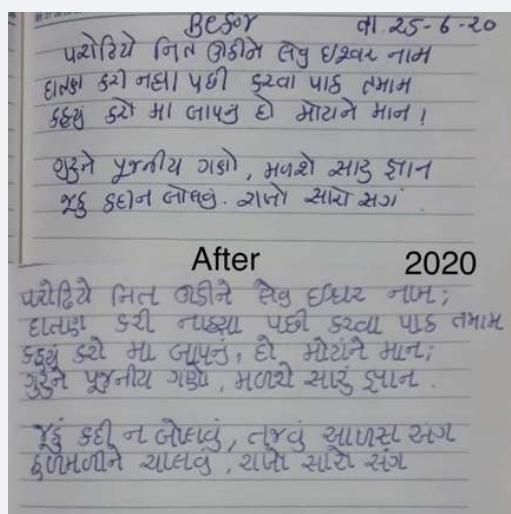 Before તા. 25-6-20
પરોઢિયે નિત ઊઠીને લેવુ ઇશ્વર નામ
દાતણ કરી નહા પછી કરવા પાઠ તમામ
કહ્યું કરો મા બાપનું દો મોટાને માન !
ગુરુને પૂજનીય ગણો, મળશે સારુ જ્ઞાન
જૂઠુ કદીન બોલવું. રાખો સારો સંગ
After 2020
પરોઢિયે નિત ઊઠીને લેવુ ઈશ્વર નામ;
દાતણ કરી નાહ્યા પછી કરવા પાઠ તમામ
કહ્યું કરો મા બાપનું, દો મોટાંને માન;
ગુરુને પૂજનીય ગણો, મળશે સારું જ્ઞાન.
જૂઠું કદી ન બોલવું, તજવું આળસ અંગ
હળમળીને ચાલવું, રાખો સારો સંગ